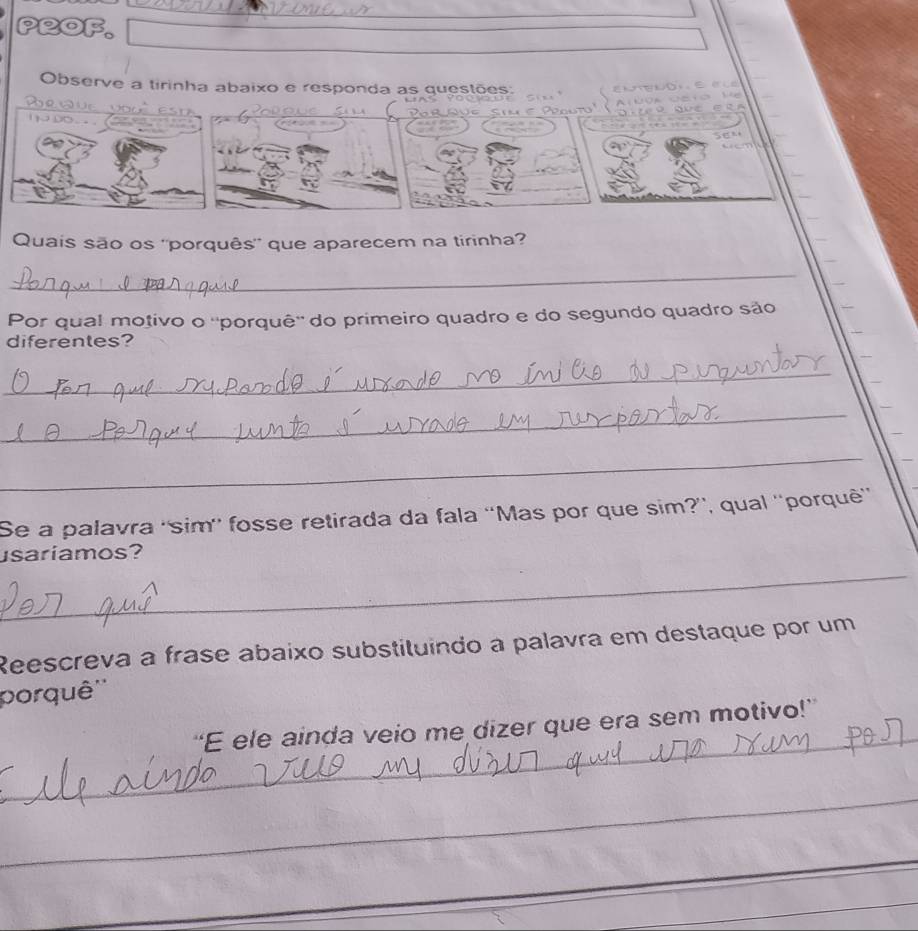 PROF.
Observe a tirinha abaixo e responda as questões:
PORQUE VOCÊ ESTA
INDO...
PORQUE SIM
MAS PORQUE SIM?
PORQUE SIM E PRONTO!
ENTENDI. E ELE
AINDA VEIO ME
DIZER QUE ERA
SEM
Quais são os "porquês" que aparecem na tirinha?
Porque e porque
Por qual motivo o "porquê" do primeiro quadro e do segundo quadro são
diferentes?
O Por que separado é usado no início de perguntar
e o Porque junto é usado em responstar.
Se a palavra "sim" fosse retirada da fala "Mas por que sim?", qual "porquê"
usaríamos?
Por quê
Reescreva a frase abaixo substituindo a palavra em destaque por um
porquê"
"E ele ainda veio me dizer que era sem motivo!"
E ele ainda veio me dizer que era sem por